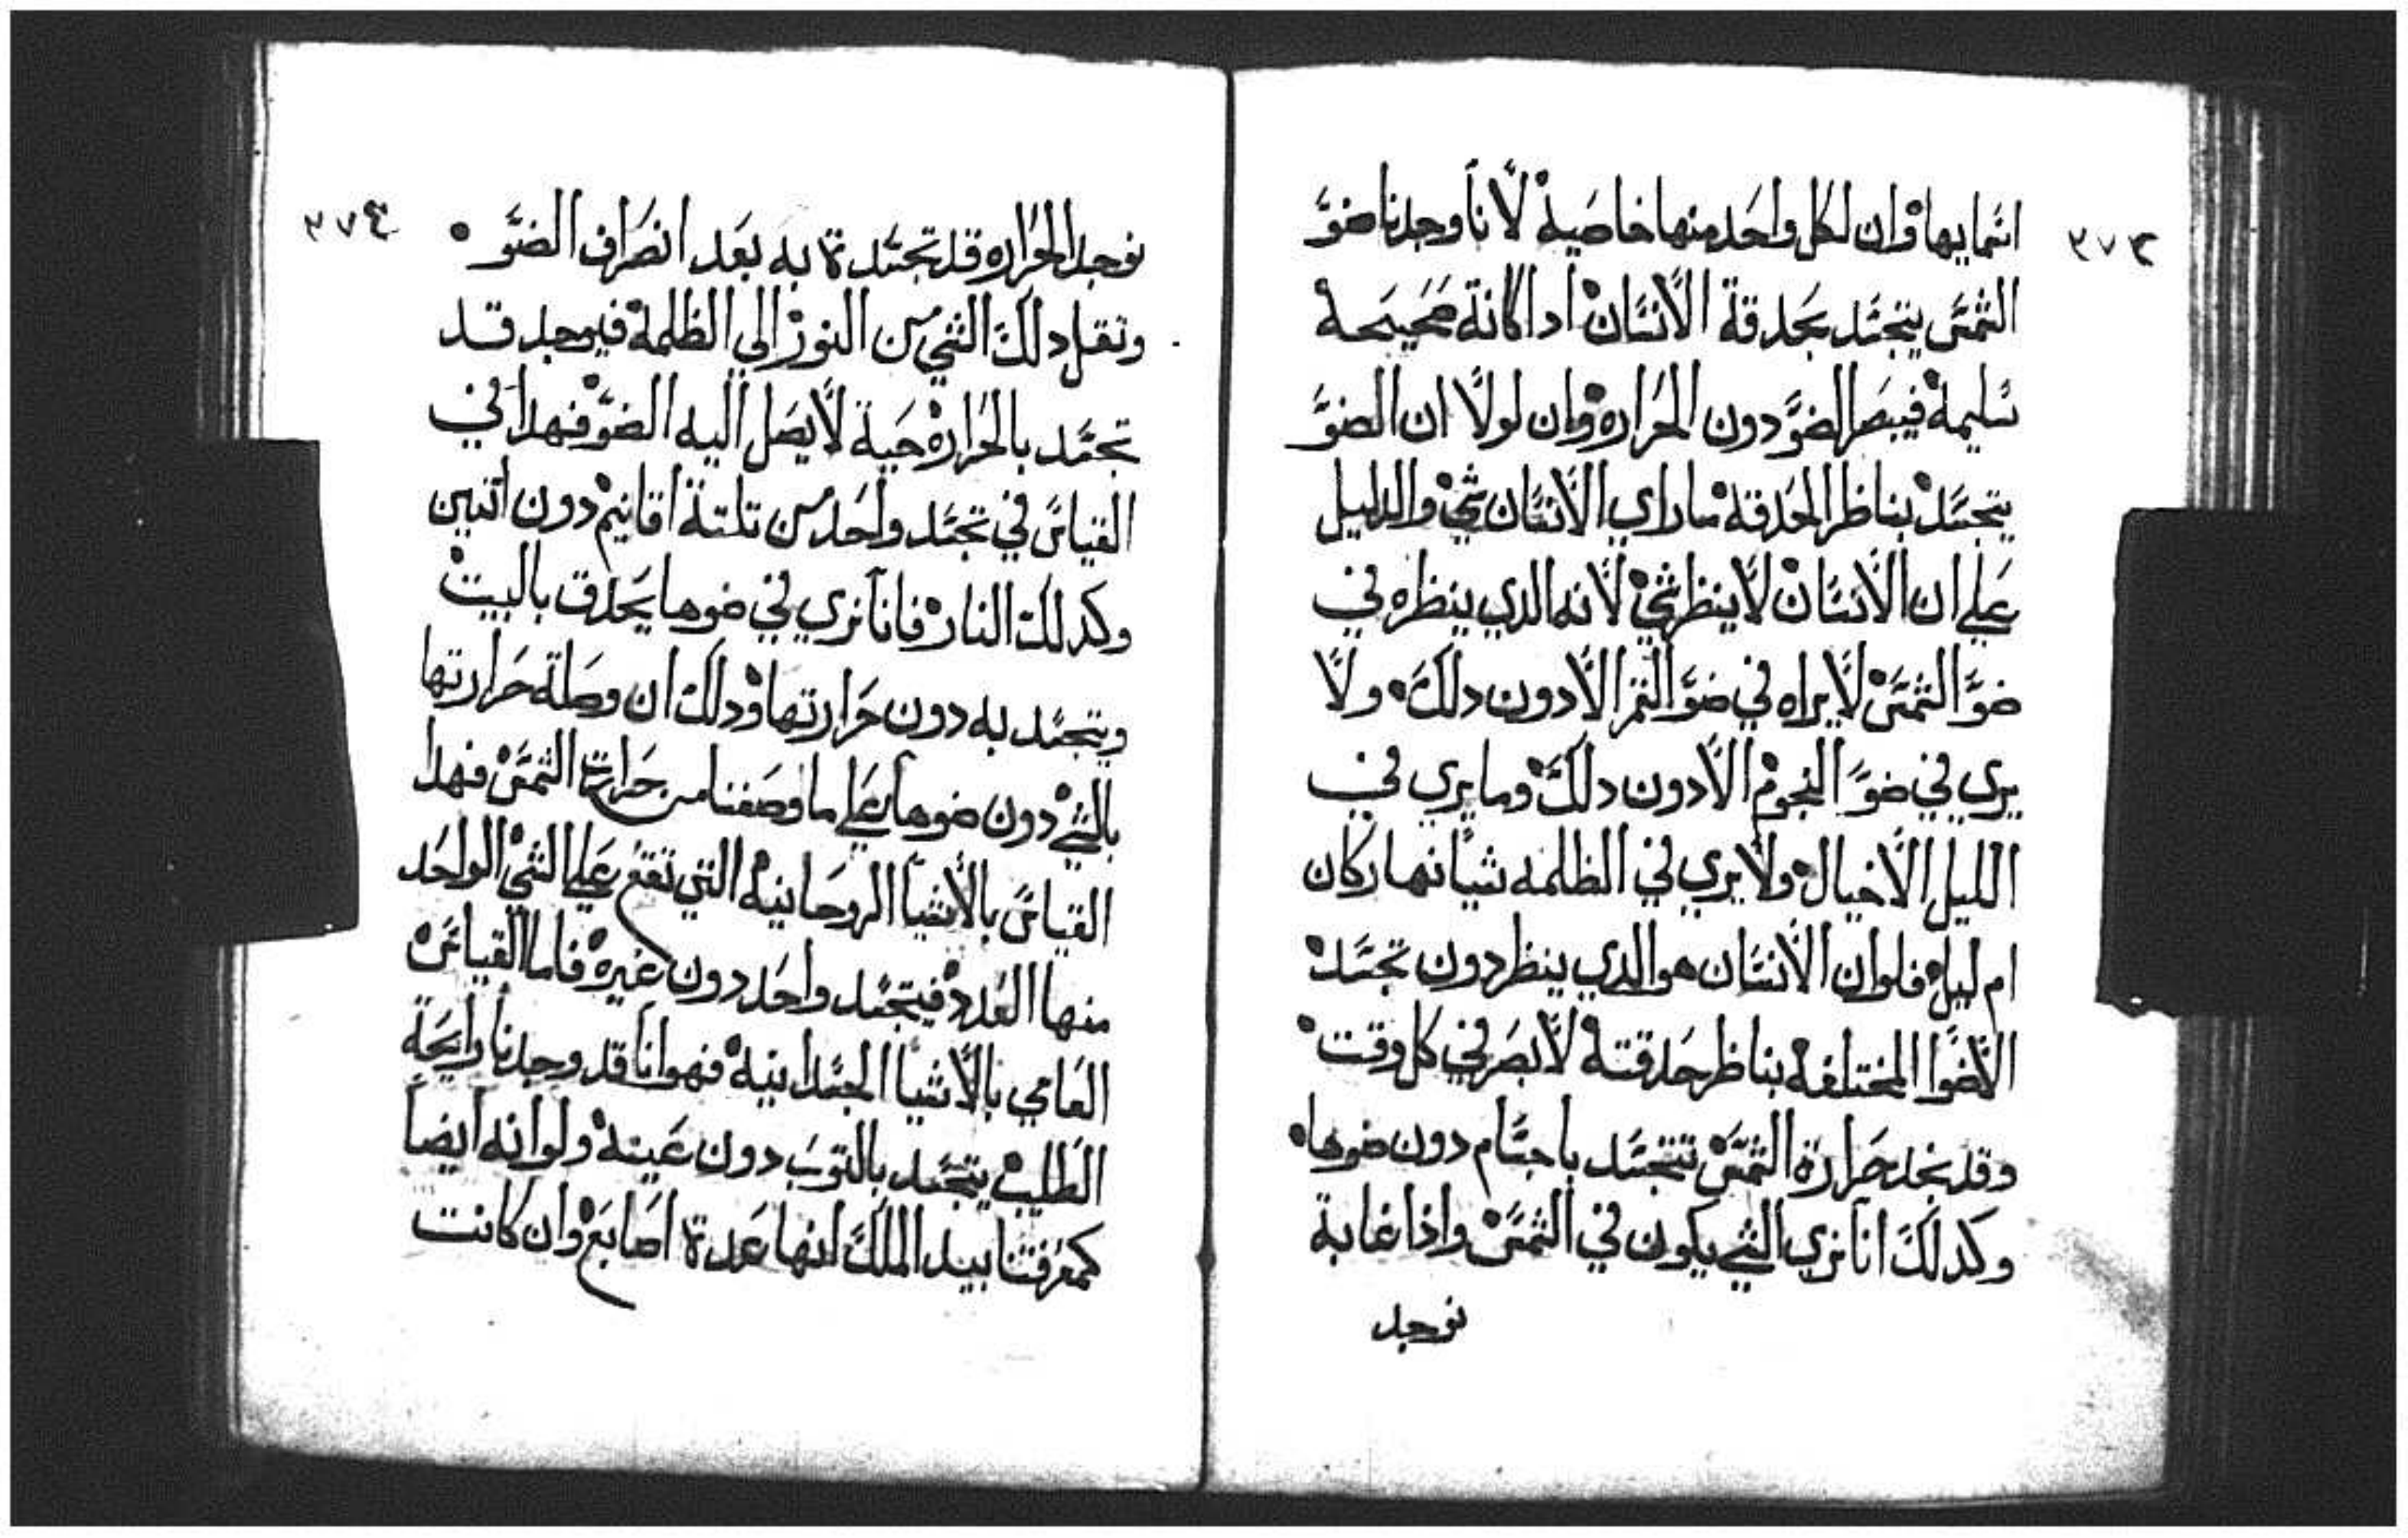 ٣٧٣
اسمايها وان لكل واحد منها خاصية لانا وجدنا ضو
الشمس يتجسد بحدقة الانسان ادا كانة صحيحة
سليمة فيبصر الضو دون الحرارة وان لولا ان الضو
يتجسد بناظر الحدقة ما راي الانسان شي والدليل
علي ان الانسان لا ينظر شي لانه الدي ينظره في
ضو الشمس لا يراه في ضو القمر الا دون دلك ولا
يري في ضو النجوم الا دون دلك وما يري في
الليل الا خيال ولا يري في الظلمه شيا نهار كان
ام ليل فلو ان الانسان هو الدي ينظر دون تجسد
الاضوا المختلفة بناظر حدقتة لابصر في كل وقت
وقد نجد حرارة الشمس تتجسد باجسام دون ضوها
وكدلك انا نري الشي يكون في الشمس واذا غابة
نوجد
٣٧٤
نوجد الحراره قد تجسدة به بعد انصراف الضو
ونقل دلك الشي من النور الي الظلمة فيوجد قد
تجسد بالحرارة حية لا يصل اليه الضو فهدا في
القياس في تجسد واحد من تلتة اقانيم دون اتنين
وكدلك النار فانا نري في ضوها يحدق بالبيت
ويتجسد به دون حرارتها ودلك ان وصلة حرارتها
بالشي دون ضوها علي ما وصفنا من حرارة الشمس فهدا
القياس بالاشيا الروحانية التي تقع علي الشي الواحد
منها العدد فيتجسد واحد دون غيره فاما القياس
العامي بالاشيا الجسدانية فهو انا قد وجدنا رايحة
الطيب يتجسد بالتوب دون عينة ولو انه ايضا
كمعرفتنا بيد الملك انها عدة اصابع وان كانت